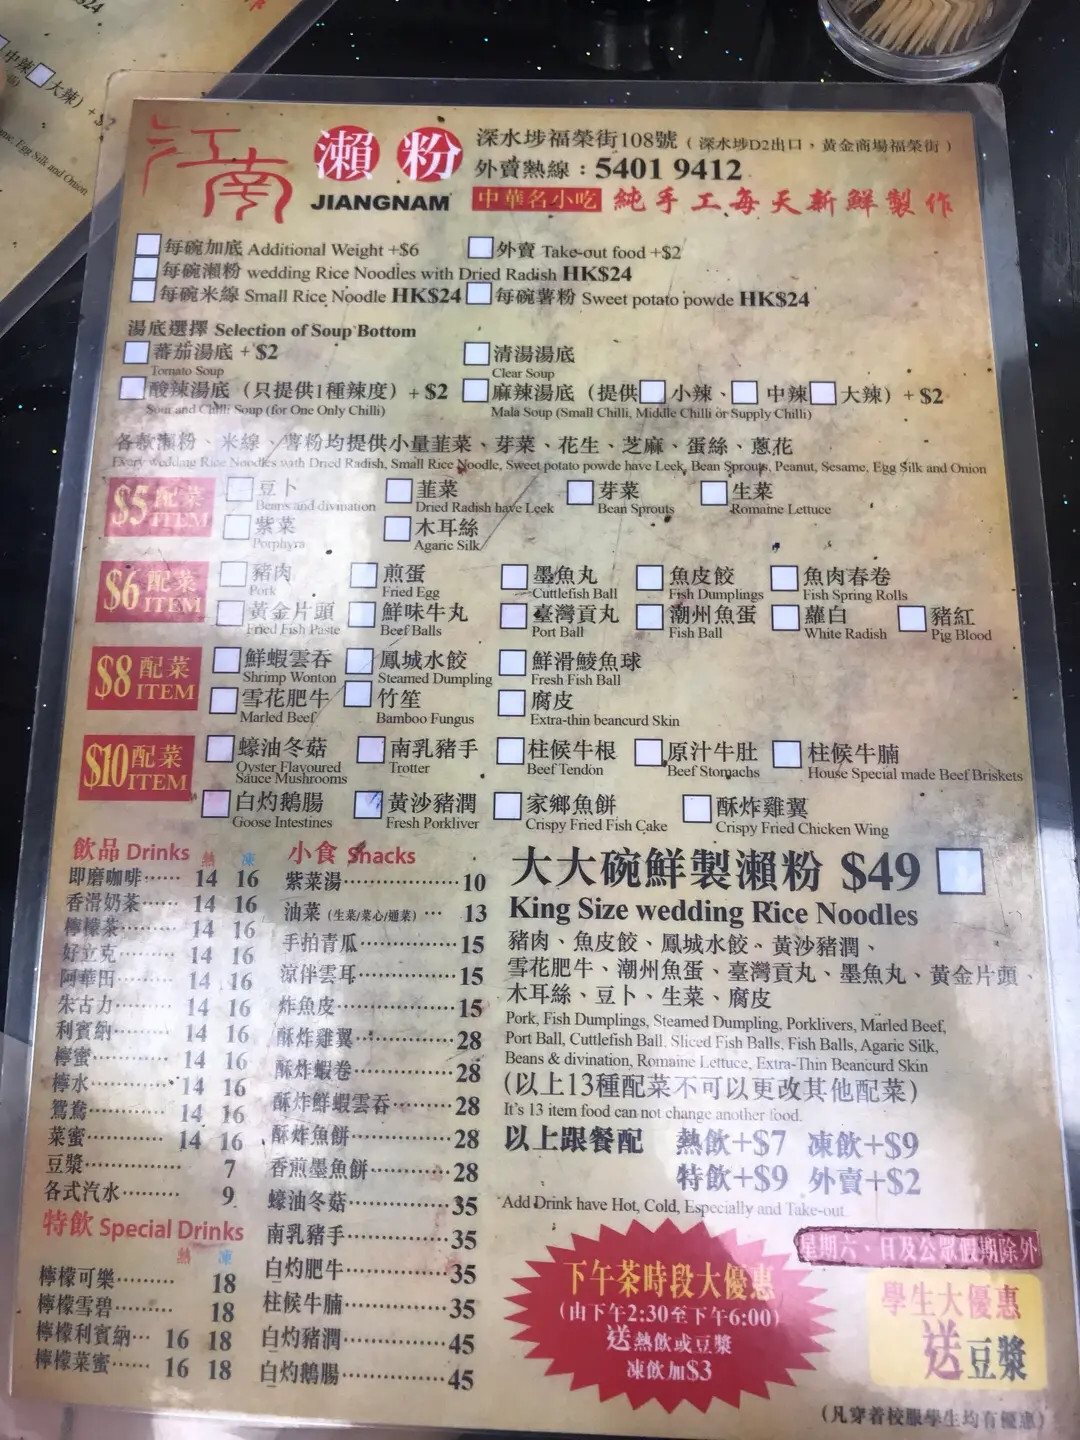 江南 瀨粉 JIANGNAM
深水埗福榮街108號 ( 深水埗D2出口，黃金商場福榮街 )
外賣熱線：5401 9412
中華名小吃 純手工每天新鮮製作
每碗加底 Additional Weight +$6 外賣 Take-out food +$2
每碗瀨粉 wedding Rice Noodles with Dried Radish HK$24
每碗米線 Small Rice Noodle HK$24 每碗薯粉 Sweet potato powde HK$24
湯底選擇 Selection of Soup Bottom
蕃茄湯底 + $2 清湯湯底
Tomato Soup Clear Soup
酸辣湯底（只提供1種辣度）+ $2 麻辣湯底（提供 小辣、 中辣 大辣）+ $2
Sour and Chilli Soup (for One Only Chilli) Mala Soup (Small Chilli, Middle Chilli or Supply Chilli)
各款瀨粉、米線、薯粉均提供小量韮菜、芽菜、花生、芝麻、蛋絲、蔥花
Every wedding Rice Noodles with Dried Radish, Small Rice Noodle, Sweet potato powde have Leek, Bean Sprouts, Peanut, Sesame, Egg Silk and Onion
$5 配菜 ITEM
豆卜 韮菜 芽菜 生菜
Beans and divination Dried Radish have Leek Bean Sprouts Romaine Lettuce
紫菜 木耳絲
Porphyra Agaric Silk
$6 配菜 ITEM
豬肉 煎蛋 墨魚丸 魚皮餃 魚肉春卷
Pork Fried Egg Cuttlefish Ball Fish Dumplings Fish Spring Rolls
黃金片頭 鮮味牛丸 臺灣貢丸 潮州魚蛋 蘿白 豬紅
Fried Fish Paste Beef Balls Port Ball Fish Ball White Radish Pig Blood
$8 配菜 ITEM
鮮蝦雲吞 鳳城水餃 鮮滑鯪魚球
Shrimp Wonton Steamed Dumpling Fresh Fish Ball
雪花肥牛 竹笙 腐皮
Marled Beef Bamboo Fungus Extra-thin beancurd Skin
$10 配菜 ITEM
蠔油冬菇 南乳豬手 柱候牛根 原汁牛肚 柱候牛腩
Oyster Flavoured Sauce Mushrooms Trotter Beef Tendon Beef Stomachs House Special made Beef Briskets
白灼鵝腸 黃沙豬潤 家鄉魚餅 酥炸雞翼
Goose Intestines Fresh Porkliver Crispy Fried Fish Cake Crispy Fried Chicken Wing
飲品 Drinks 熱 凍
即磨咖啡…… 14 16
香滑奶茶…… 14 16
檸檬茶…… 14 16
好立克…… 14 16
阿華田…… 14 16
朱古力…… 14 16
利賓納…… 14 16
檸蜜…… 14 16
檸水…… 14 16
鴛鴦…… 14 16
菜蜜…… 14 16
豆漿…… 7
各式汽水…… 9
特飲 Special Drinks
熱 凍
檸檬可樂…… 18
檸檬雪碧…… 18
檸檬利賓納… 16 18
檸檬菜蜜…… 16 18
小食 Snacks
紫菜湯…… 10
油菜 (生菜/菜心/通菜) … 13
手拍青瓜…… 15
涼伴雲耳…… 15
炸魚皮…… 15
酥炸雞翼…… 28
酥炸蝦卷…… 28
酥炸鮮蝦雲吞…… 28
酥炸魚餅…… 28
香煎墨魚餅…… 28
蠔油冬菇…… 35
南乳豬手…… 35
白灼肥牛…… 35
柱候牛腩…… 35
白灼豬潤…… 45
白灼鵝腸…… 45
大大碗鮮製瀨粉 $49
King Size wedding Rice Noodles
豬肉、魚皮餃、鳳城水餃、黃沙豬潤、
雪花肥牛、潮州魚蛋、臺灣貢丸、墨魚丸、黃金片頭、
木耳絲、豆卜、生菜、腐皮
Pork, Fish Dumplings, Steamed Dumpling, Porklivers, Marled Beef,
Port Ball, Cuttlefish Ball, Sliced Fish Balls, Fish Balls, Agaric Silk,
Beans & divination, Romaine Lettuce, Extra-Thin Beancurd Skin
(以上13種配菜不可以更改其他配菜)
It's 13 item food can not change another food.
以上跟餐配 熱飲+$7 凍飲+$9
特飲+$9 外賣+$2
Add Drink have Hot, Cold, Especially and Take-out
下午茶時段大優惠
(由下午2:30至下午6:00)
送熱飲或豆漿
凍飲加$3
星期六、日及公眾假期除外
學生大優惠
送豆漿
(凡穿着校服學生均有優惠)
中辣 大辣) + $2
Egg Silk and Onion